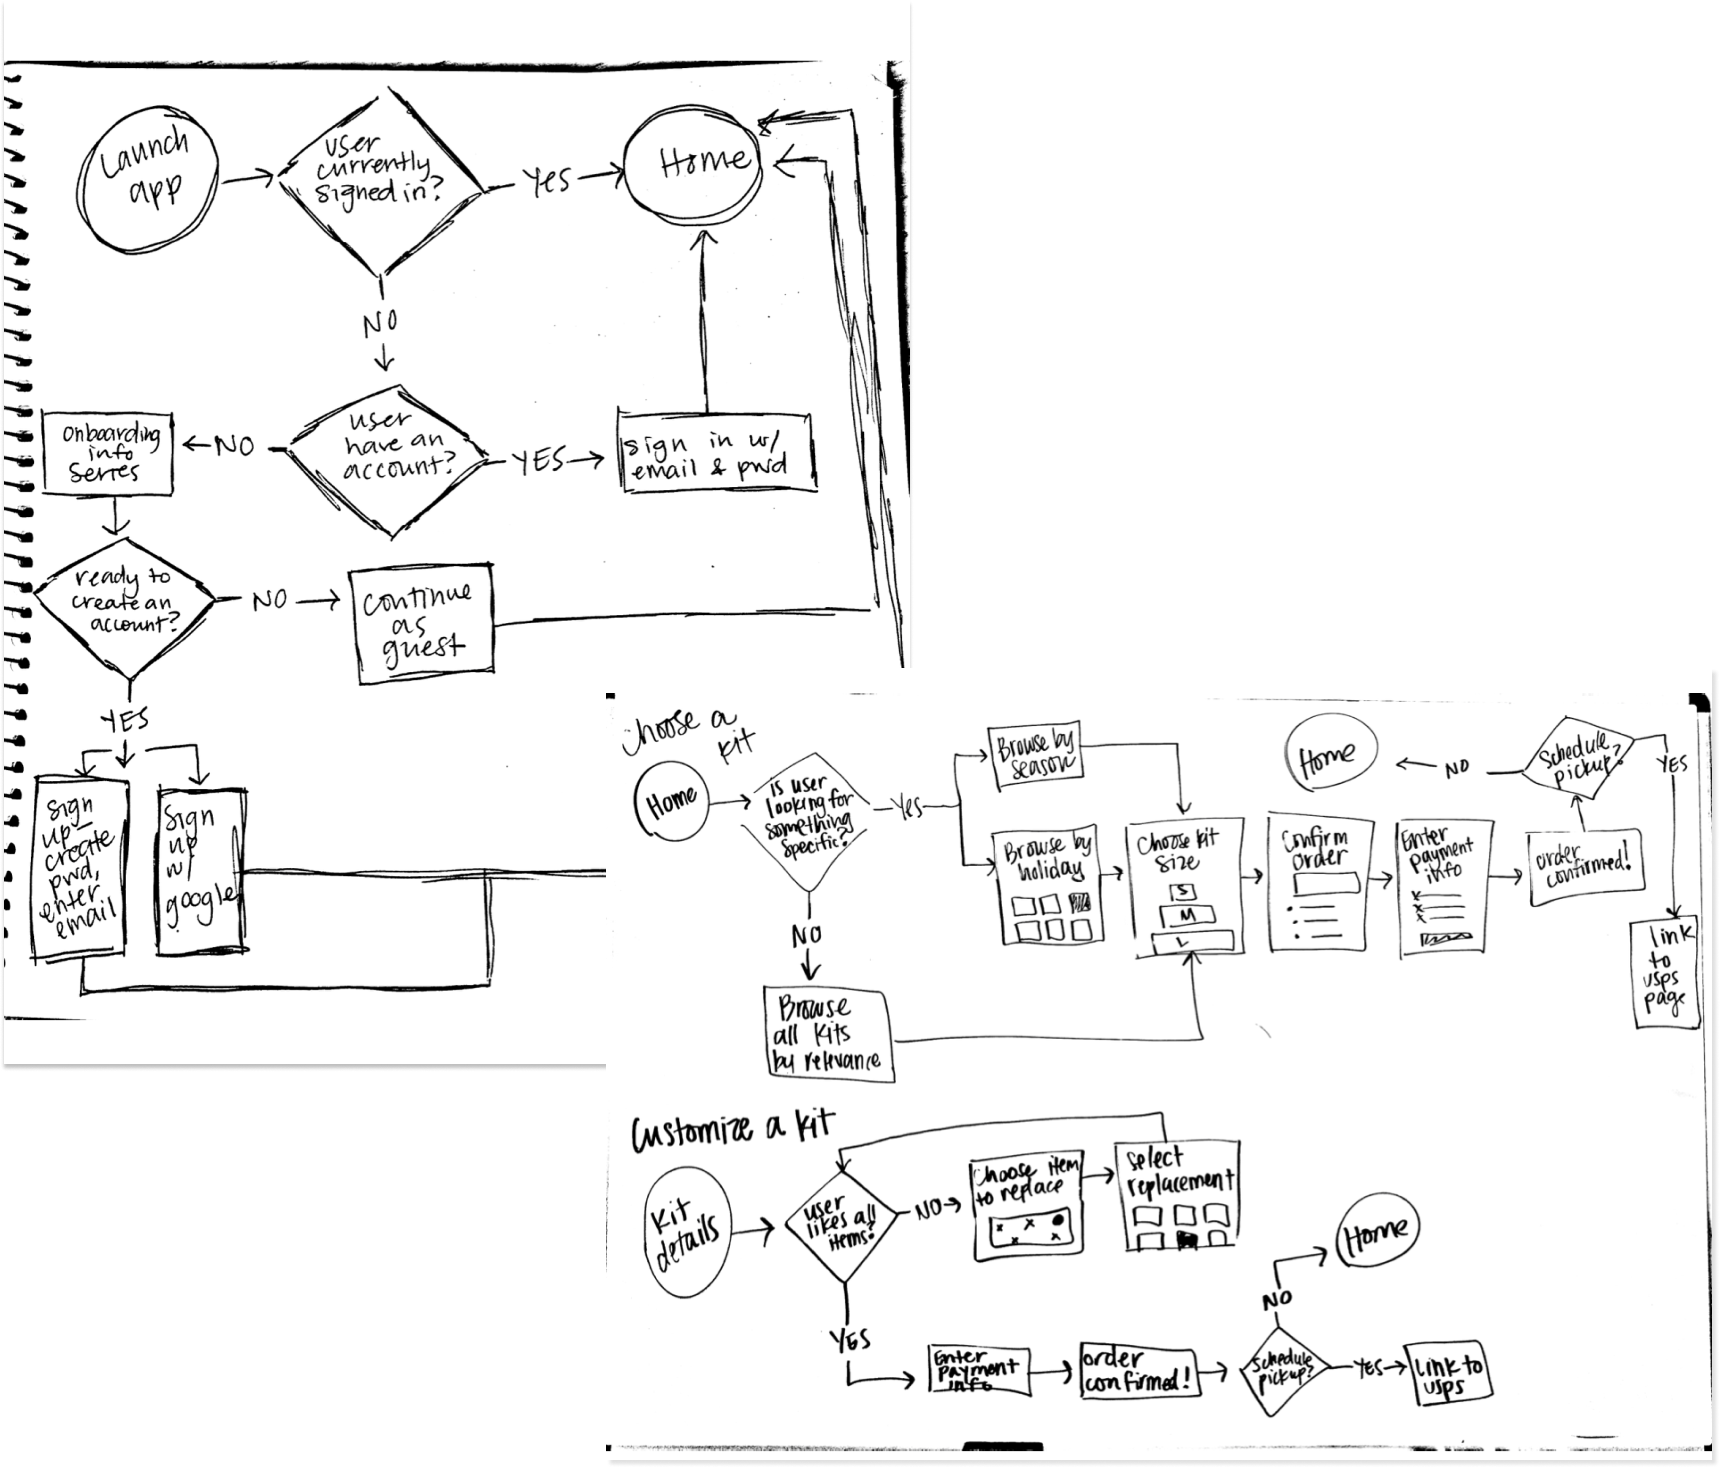 Launch
app
user
currently
signed in?
YES
Home
NO
user
have an
account?
NO
onboarding
info
series
YES
sign in w/
email & pwd
ready to
create an
account?
NO
continue
as
guest
YES
sign
up –
create
pwd,
enter
email
sign
up
w/
google
Choose a
kit
Home
IS user
looking for
something
specific?
Yes
Browse by
season
Browse by
holiday
NO
Browse
all kits
by relevance
Choose kit
size
S
M
L
Confirm
order
Enter
payment
info
order
confirmed!
Schedule
pickup?
NO
Home
YES
link
to
usps
page
Customize a kit
Kit
details
user
likes all
items?
NO
Choose item
to replace
select
replacement
YES
Enter
payment
info
order
confirmed!
Schedule
pickup?
NO
Home
YES
Link to
usps